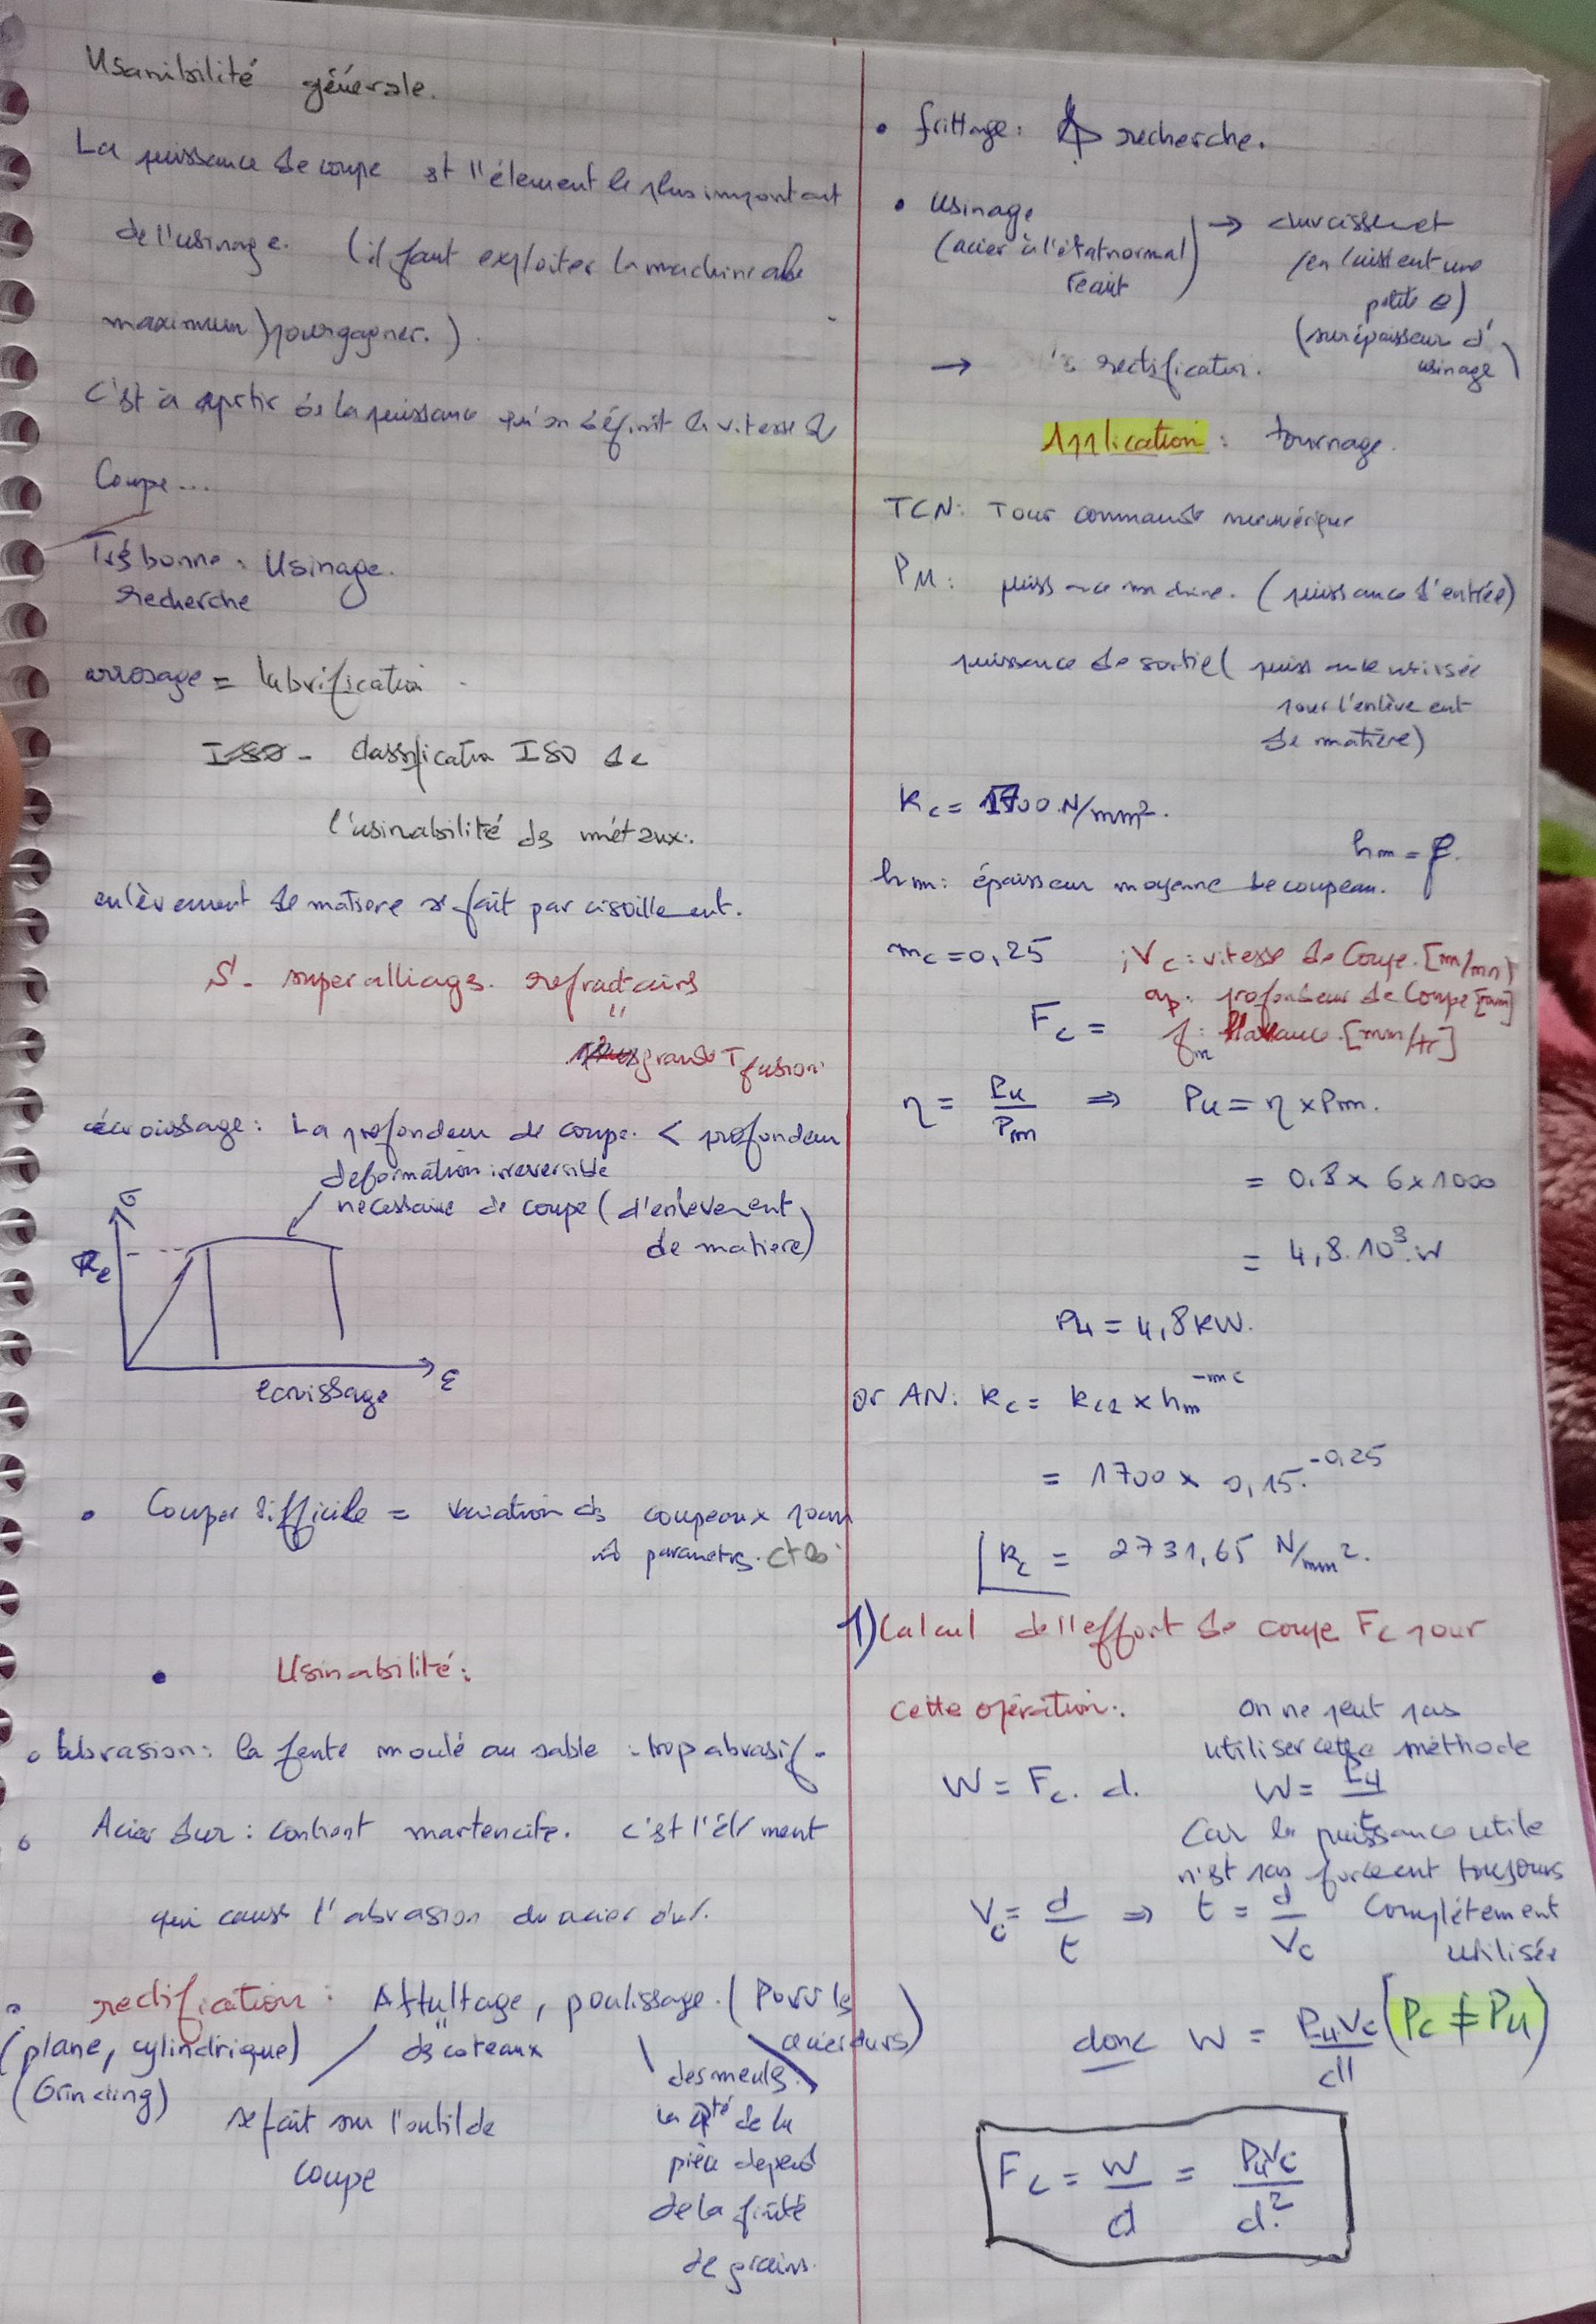 Usanibilité générale.
La puissance de coupe est l'élement le plus important
de l'usinage. (il faut exploiter la machine au
maximum) pour gagner.)
C'est à aprtir de la puissance qu'on définit la vitesse de
Coupe...
Trés bonne : Usinage.
recherche
arrosage = lubrification
ISO - Classification ISO de
l'usinabilité ds métaux.
enlèvement de matiere se fait par cisaillement.
S - superalliags. refractairs
"
grande T fusion
écrouissage : La profondeur de coupe < profondeur
deformation irreversible
necessaire de coupe (d'enlevement
de matiere)
σ
Re
ε
ecrouissage
• Couper difficile = variation ds coupeaux pour
parametrs. cts
• Usinabilité :
• Abrasion : la fente moulé au sable : trop abrasif.
• Acier dur : contient martencite. c'est l'élément
qui cause l'abrasion du acier dur.
• rectification : Affultage, poulissage. (Pour ls
acier durs)
(plane, cylindrique)
ds coteaux
(Grinding)
des meuls.
se fait sur l'outil de
coupe
la qté de la
pièce depend
de la finité
de grains.
• frittage : recherche.
• Usinage → durcissement
(acier à l'état normal
recuit)
(en laissent une
petite e)
(surépaisseur d'
usinage)
→ rectification.
Application : tournage.
TCN : Tour commande numérique
PM : puissance machine. (puissance d'entrée)
puissance de sortie (puissance utilisée
pour l'enlèvement
de matière)
Kc = 1700 N/mm².
hm = f.
hm : épaisseur moyenne de coupeau.
mc = 0,25 ; Vc : vitesse de Coupe. [m/mn]
ap : profondeur de Coupe [mm]
Fc = f : l'avance. [mm/tr]
η = Pu/Pm ⇒ Pu = η × Pm.
= 0.8 × 6 × 1000
= 4,8.10³ W
Pu = 4,8 KW.
or AN : Kc = Kc1 × hm^-mc
= 1700 × 0,15^-0,25
Kc = 2731,65 N/mm².
1) Calcul de l'effort de coupe Fc pour
cette opération :
on ne peut pas
utiliser cette méthode
W = Fc. d. W = Pu/t
Car la puissance utile
n'est pas forcement toujours
Vc = d/t ⇒ t = d/Vc Complétement
utilisée
donc W = PuVc/d (Pc ≠ Pu)
Fc = W/d = PuVc/d²